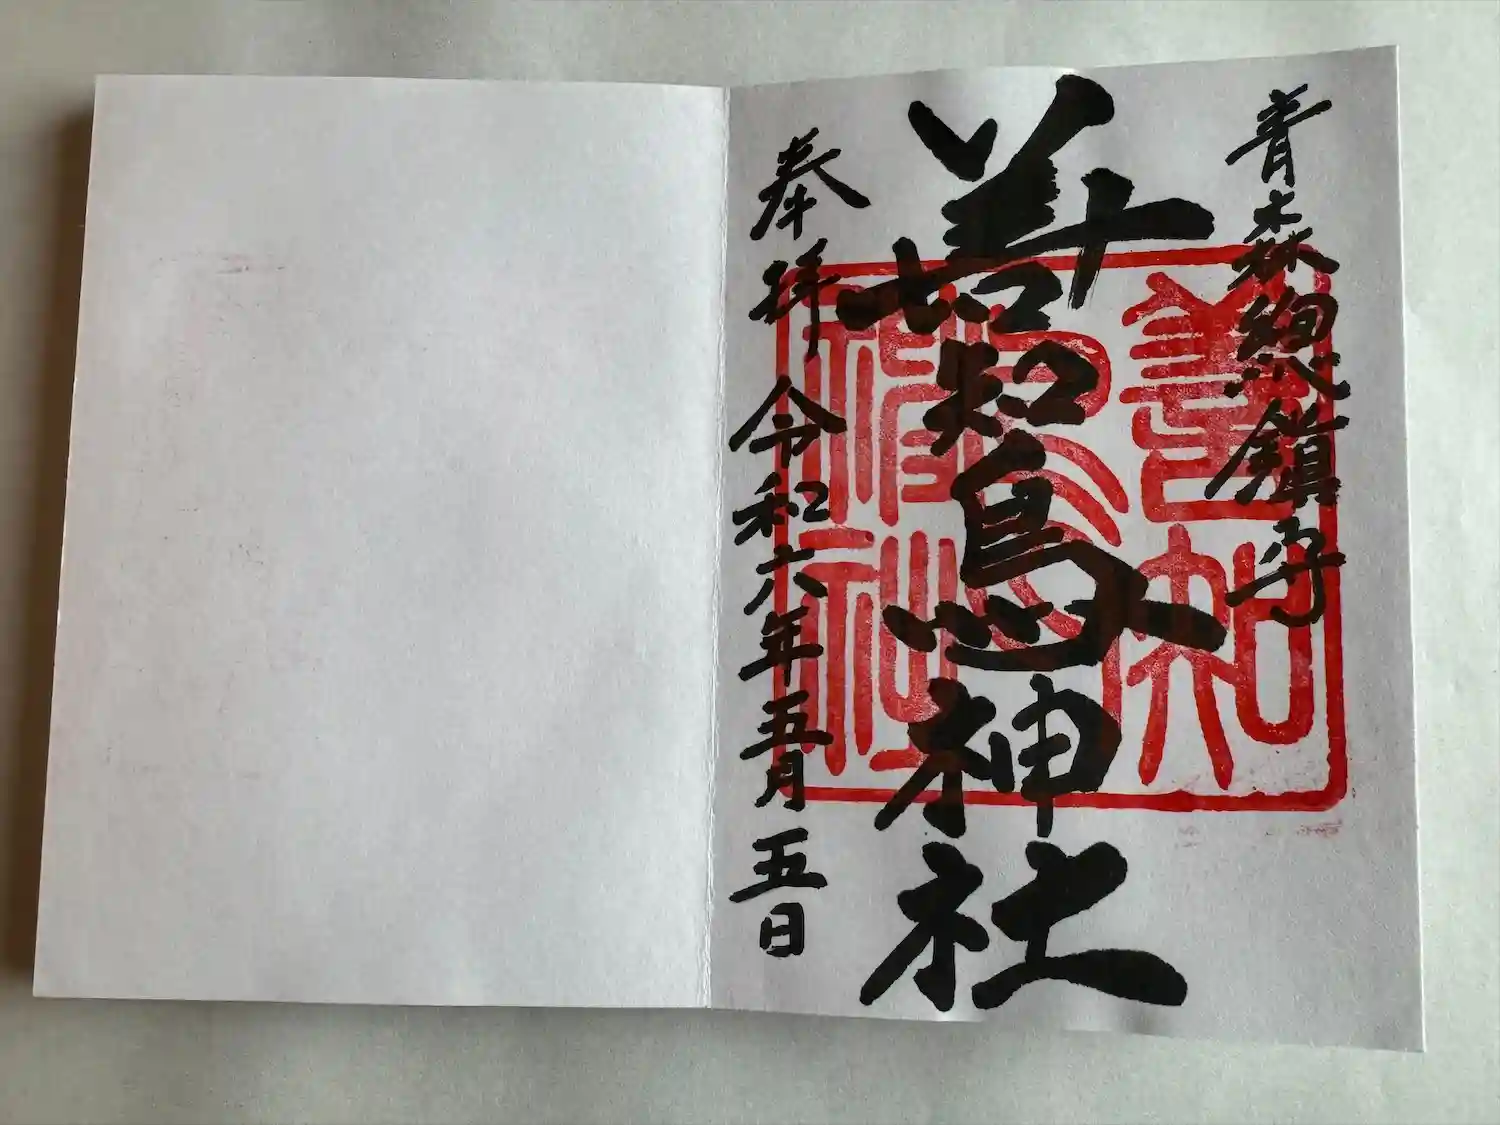 青森總鎮守
善知鳥神社
奉拝 令和六年五月五日
善知鳥神社